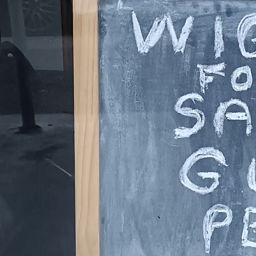 WIG
FO
SA
GU
PE